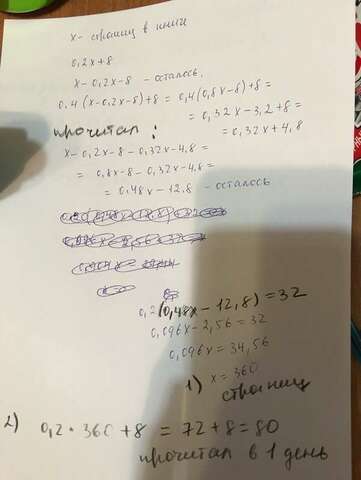 x - страниц в книги
0,2x+8
x-0,2x-8 - осталось.
0,4(x-0,2x-8)+8 = 0,4(0,8x-8)+8 =
= 0,32x-3,2+8 =
= 0,32x+4,8
прочитал:
x-0,2x-8-0,32x-4,8 =
= 0,8x-8-0,32x-4,8 =
= 0,48x-12,8 - осталось
0,2(0,48x-12,8)=32
0,096x-2,56=32
0,096x=34,56
1) x=360
страниц
2) 0,2·360+8 = 72+8=80
прочитал в 1 день